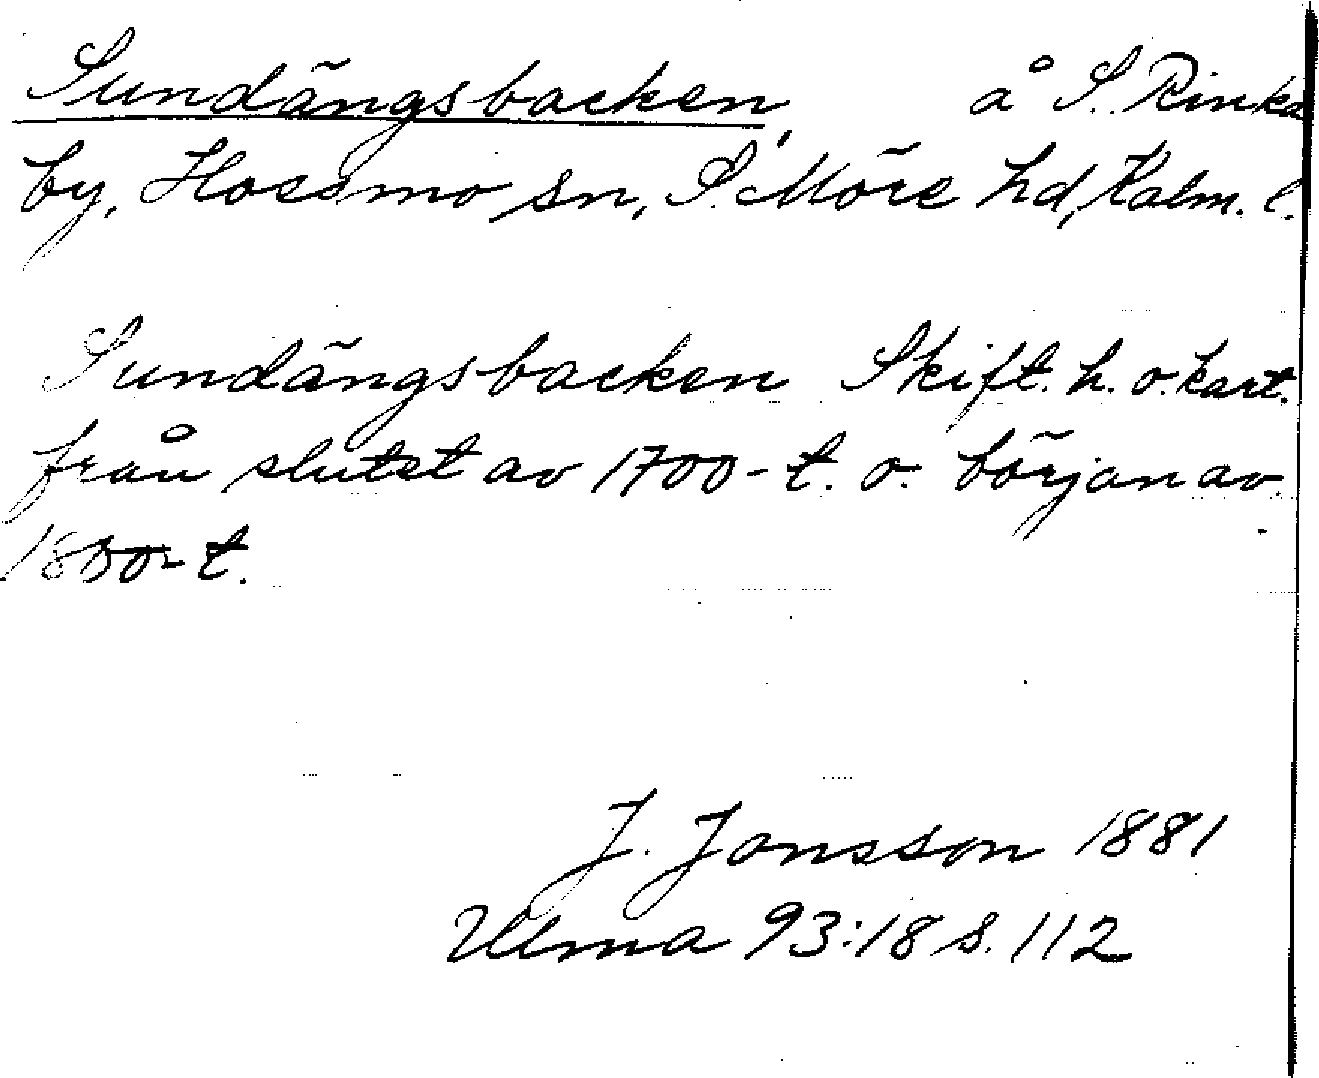 Sundängsbacken, å S. Rinka
by, Hossmo sn, S. Möre hd, Kalm. l.
Sundängsbacken Skift. h. o. kart.
från slutet av 1700-t. o. början av
1800-t.
J. Jonsson 1881
Ulma 93:18 s. 112